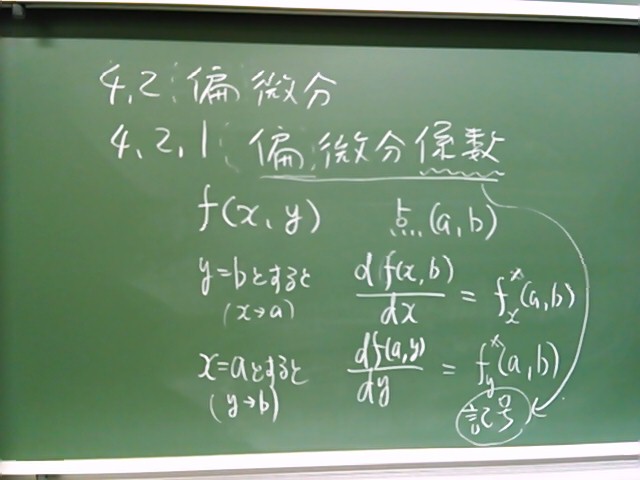 4.2 偏微分
4.2.1 偏微分係数
f(x, y) 点 (a, b)
y=bとすると df(x, b)/dx = f*x(a, b)
(x→a)
x=aとすると df(a, y)/dy = f*y(a, b)
(y→b)
記号